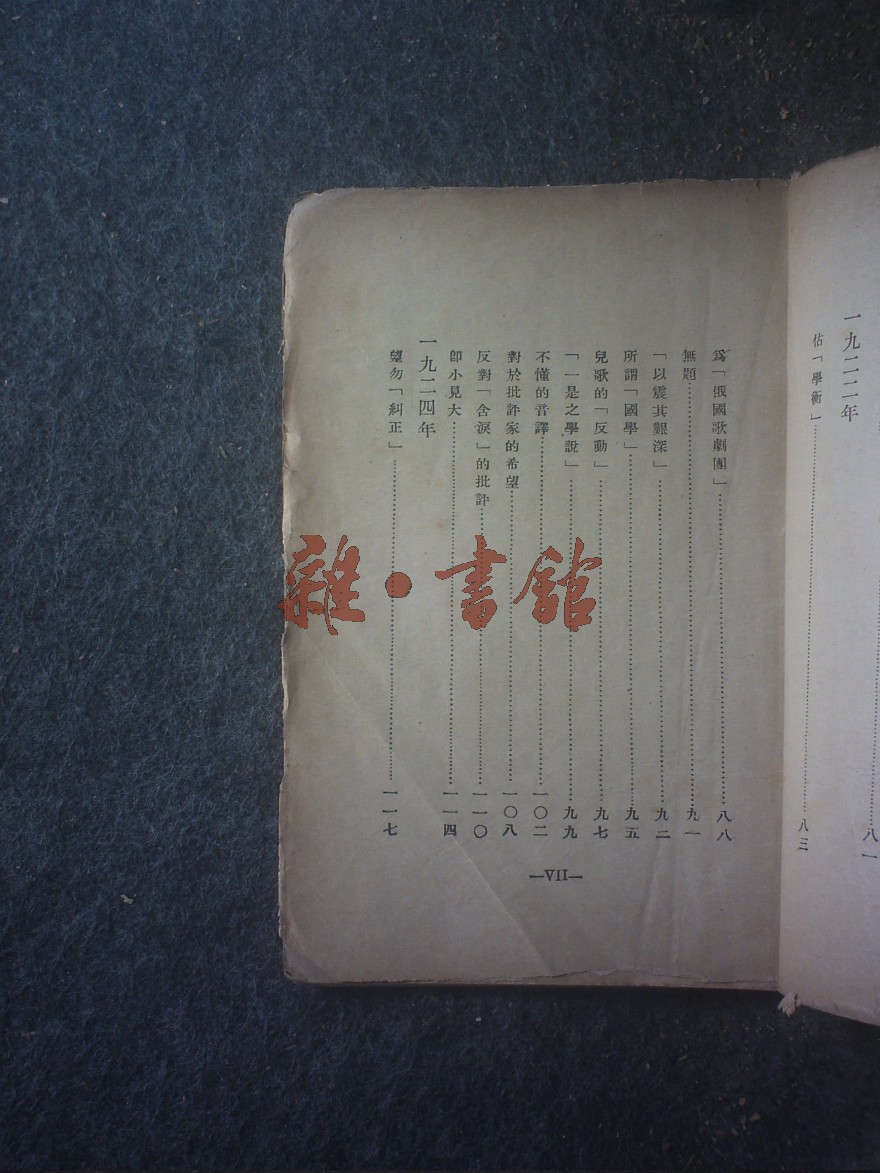 八一
一九二二年
估「學衡」……八三
爲「俄國歌劇團」……八八
無題……九一
「以震其艱深」……九二
所謂「國學」……九五
兒歌的「反動」……九七
「一是之學說」……九九
不懂的音譯……一〇二
對於批評家的希望……一〇八
反對「含淚」的批評……一一〇
卽小見大……一一四
一九二四年
望勿「糾正」……一一七
—VII—
雜·書館